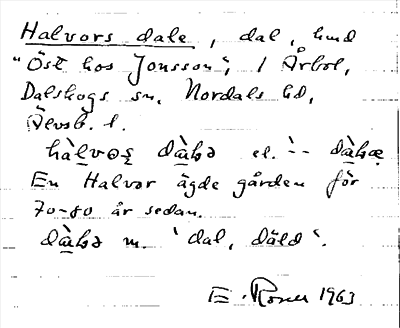 Halvors dale, dal, hmd
"Öst hos Jonsson", i Årbol,
Dalskogs sn, Nordals hd,
Älvsb. l.
hàlvoș dàlsə el. `-- dàlsæ
En Halvor ägde gården för
70-80 år sedan.
dàlsə m. 'dal, däld'.
E. 1963